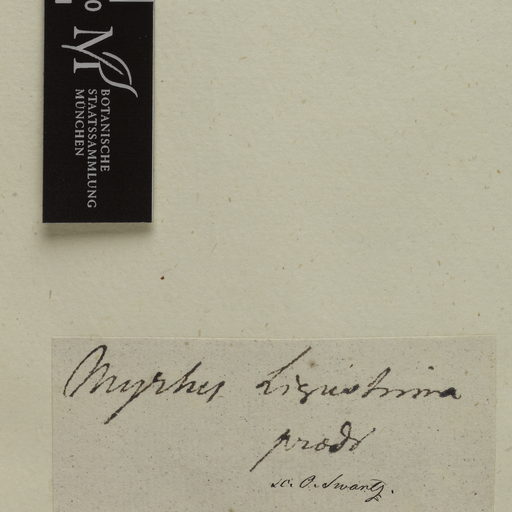 0
M
BOTANISCHE
STAATSSAMMLUNG
MÜNCHEN
Myrtus Ligustrina
prodr
sc. O. Swartz.